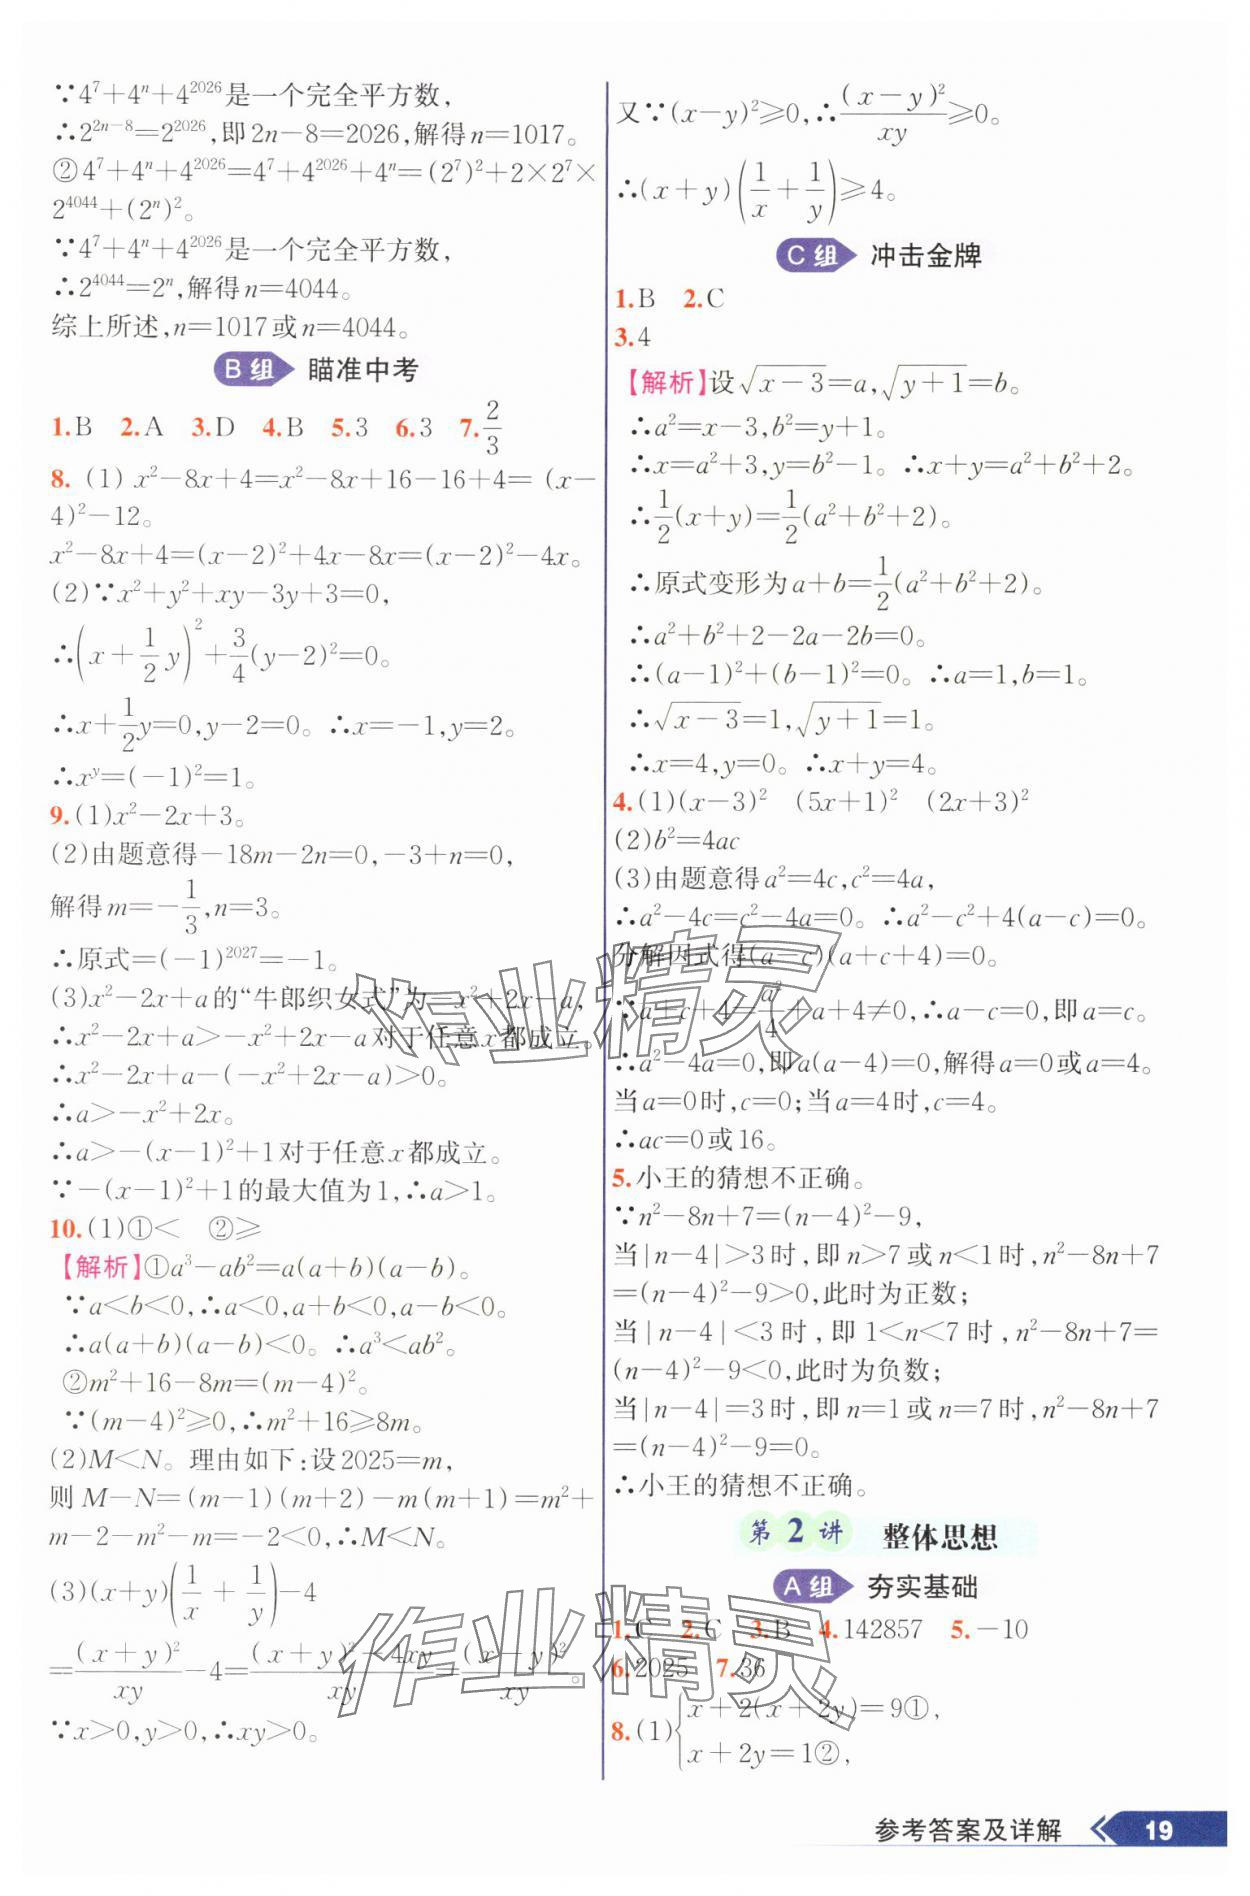 ∵4⁷+4ⁿ+4²⁰²⁶是一个完全平方数,
∴2²ⁿ⁻⁸=2²⁰²⁶,即2n-8=2026,解得n=1017。
②4⁷+4ⁿ+4²⁰²⁶=4⁷+4²⁰²⁶+4ⁿ=(2⁷)²+2×2⁷×
2⁴⁰⁴⁴+(2ⁿ)²。
∵4⁷+4ⁿ+4²⁰²⁶是一个完全平方数,
∴2⁴⁰⁴⁴=2ⁿ,解得n=4044。
综上所述,n=1017或n=4044。
B组 瞄准中考
1.B 2.A 3.D 4.B 5.3 6.3 7.2/3
8. (1) x²-8x+4=x²-8x+16-16+4= (x-
4)²-12。
x²-8x+4=(x-2)²+4x-8x=(x-2)²-4x。
(2)∵x²+y²+xy-3y+3=0,
∴(x+1/2 y)²+3/4(y-2)²=0。
∴x+1/2 y=0,y-2=0。∴x=-1,y=2。
∴xʸ=(-1)²=1。
9.(1)x²-2x+3。
(2)由题意得-18m-2n=0,-3+n=0,
解得m=-1/3,n=3。
∴原式=(-1)²⁰²⁷=-1。
(3)x²-2x+a的“牛郎织女式”为-x²+2x-a,
∴x²-2x+a>-x²+2x-a对于任意x都成立。
∴x²-2x+a-(-x²+2x-a)>0。
∴a>-x²+2x。
∴a>-(x-1)²+1对于任意x都成立。
∵-(x-1)²+1的最大值为1,∴a>1。
10.(1)①< ②≥
【解析】①a³-ab²=a(a+b)(a-b)。
∵a<b<0,∴a<0,a+b<0,a-b<0。
∴a(a+b)(a-b)<0。∴a³<ab²。
②m²+16-8m=(m-4)²。
∵(m-4)²≥0,∴m²+16≥8m。
(2)M<N。理由如下:设2025=m,
则M-N=(m-1)(m+2)-m(m+1)=m²+
m-2-m²-m=-2<0,∴M<N。
(3)(x+y)(1/x+1/y)-4
=(x+y)²/xy-4=(x+y)²-4xy/xy=(x-y)²/xy。
∵x>0,y>0,∴xy>0。
又∵(x-y)²≥0,∴(x-y)²/xy≥0。
∴(x+y)(1/x+1/y)≥4。
C组 冲击金牌
1.B 2.C
3.4
【解析】设√(x-3)=a,√(y+1)=b。
∴a²=x-3,b²=y+1。
∴x=a²+3,y=b²-1。∴x+y=a²+b²+2。
∴1/2(x+y)=1/2(a²+b²+2)。
∴原式变形为a+b=1/2(a²+b²+2)。
∴a²+b²+2-2a-2b=0。
∴(a-1)²+(b-1)²=0。∴a=1,b=1。
∴√(x-3)=1,√(y+1)=1。
∴x=4,y=0。∴x+y=4。
4.(1)(x-3)² (5x+1)² (2x+3)²
(2)b²=4ac
(3)由题意得a²=4c,c²=4a,
∴a²-4c=c²-4a=0。∴a²-c²+4(a-c)=0。
分解因式得(a-c)(a+c+4)=0。
∵a+c+4=a²/4+a+4≠0,∴a-c=0,即a=c。
∴a²-4a=0,即a(a-4)=0,解得a=0或a=4。
当a=0时,c=0;当a=4时,c=4。
∴ac=0或16。
5.小王的猜想不正确。
∵n²-8n+7=(n-4)²-9,
当|n-4|>3时,即n>7或n<1时,n²-8n+7
=(n-4)²-9>0,此时为正数;
当|n-4|<3时,即1<n<7时,n²-8n+7=
(n-4)²-9<0,此时为负数;
当|n-4|=3时,即n=1或n=7时,n²-8n+7
=(n-4)²-9=0。
∴小王的猜想不正确。
第2讲 整体思想
A组 夯实基础
1.C 2.C 3.B 4.142857 5.-10
6.2025 7.36
8.(1){x+2(x+2y)=9①,
x+2y=1②,
参考答案及详解 19
作业精灵
作业精灵